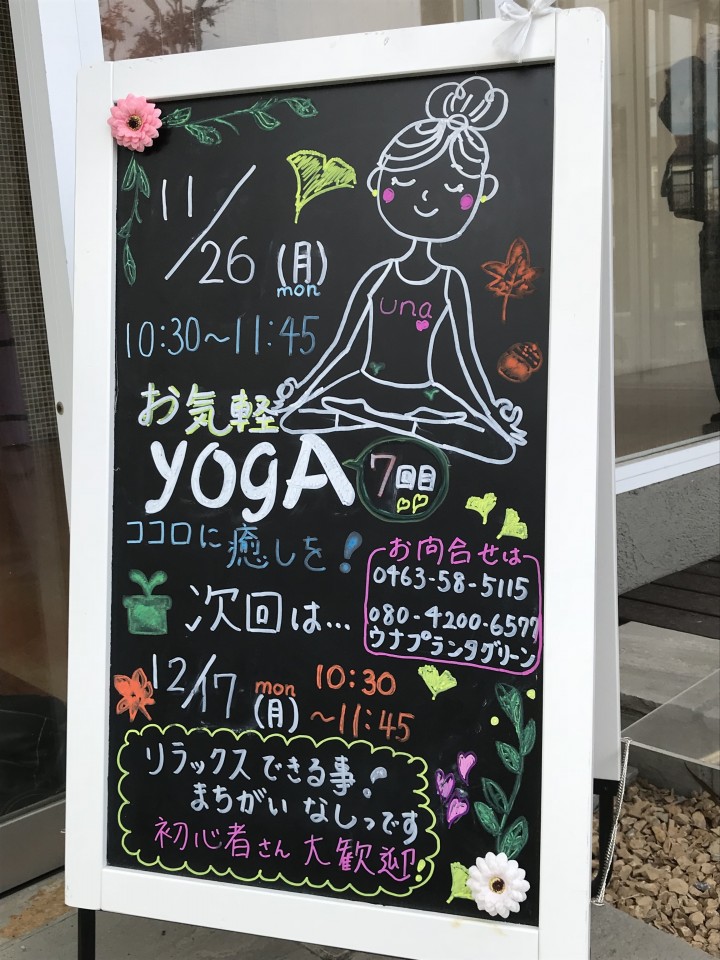 11/26(月)
mon
una
10:30～11:45
お気軽
yogA 7回目
ココロに癒しを!
お問合せは
0463-58-5115
080-4200-6577
ウナプランタグリーン
次回は...
12/17 mon (月) 10:30
～11:45
リラックスできる事!
まちがいなしっです
初心者さん大歓迎!